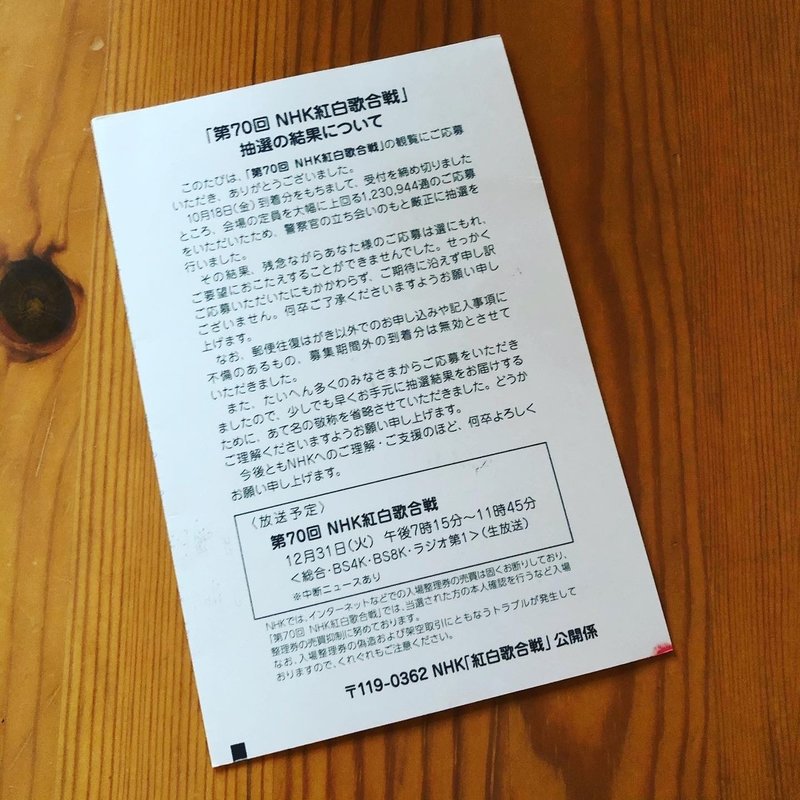 「第70回 NHK紅白歌合戦」
抽選の結果について
このたびは、「第70回 NHK紅白歌合戦」の観覧にご応募
いただき、ありがとうございました。
10月18日(金)到着分をもちまして、受付を締め切りました
ところ、会場の定員を大幅に上回る1,230,944通のご応募
をいただいたため、警察官の立ち会いのもと厳正に抽選を
行いました。
その結果、残念ながらあなた様のご応募は選にもれ、
ご要望におこたえすることができませんでした。せっかく
ご応募いただいたにもかかわらず、ご期待に沿えず申し訳
ございません。何卒ご了承くださいますようお願い申し
上げます。
なお、郵便往復はがき以外でのお申し込みや記入事項に
不備のあるもの、募集期間外の到着分は無効とさせて
いただきました。
また、たいへん多くのみなさまからご応募をいただき
ましたので、少しでも早くお手元に抽選結果をお届けする
ために、あて名の敬称を省略させていただきました。どうか
ご理解くださいますようお願い申し上げます。
今後ともNHKへのご理解・ご支援のほど、何卒よろしく
お願い申し上げます。
〈放送予定〉
第70回 NHK紅白歌合戦
12月31日(火) 午後7時15分~11時45分
<総合・BS4K・BS8K・ラジオ第1>(生放送)
※中断ニュースあり
NHKでは、インターネットなどでの入場整理券の売買は固くお断りしており、
「第70回 NHK紅白歌合戦」では、当選された方の本人確認を行うなど入場
整理券の売買抑制に努めております。
なお、入場整理券の偽造および架空取引にともなうトラブルが発生して
おりますので、くれぐれもご注意ください。
〒119-0362 NHK「紅白歌合戦」公開係